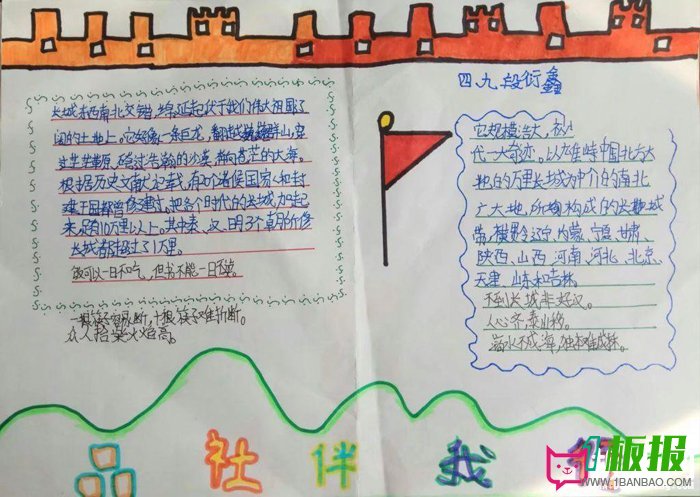 长城东西南北交错,绵延起伏于我们伟大祖国辽
阔的土地上。它好像一条巨龙,翻越巍巍群山,穿
过茫茫草原,跨过浩瀚的沙漠,奔向苍茫的大海。
根据历史文献记载,有20个诸侯国家和封
建王国都曾修建过。把各个时代的长城,加起
来,足有10万里以上。其中秦、汉、明3个朝所修
长城都超过了1万里。
饭可以一日不吃,但书不能一日不读
一根筷子容易断,十根筷子难折断。
众人拾柴火焰高。
四九段衍鑫
它规模浩大,
代一大奇迹。以雄峙中国北方大
地的万里长城为中介的南北
广大地,所构成的长城
带,横贯辽宁、内蒙、宁夏、甘肃、
陕西、山西、河南、河北、北京、
天津、山东和吉林。
不到长城非好汉。
人心齐泰山移。
滴水不成海,独木难成林。
品社伴我
板报
WWW.1BANBAO.COM